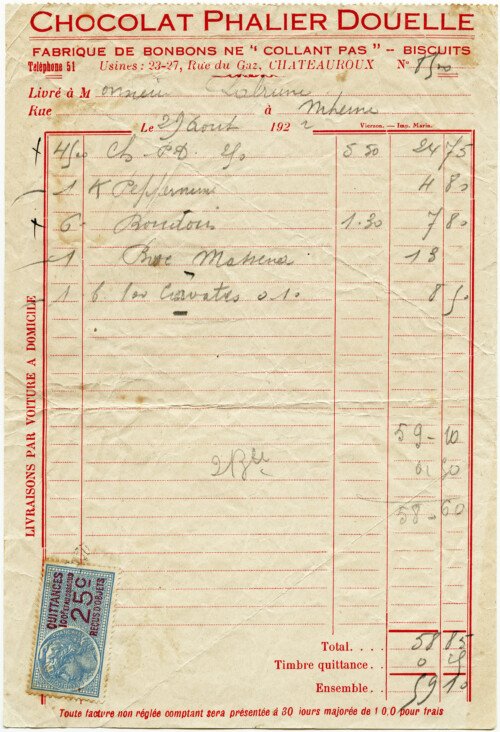 CHOCOLAT PHALIER DOUELLE
FABRIQUE DE BONBONS NE "COLLANT PAS" – BISCUITS
Téléphone 51 Usines : 23-27, Rue du Gaz, CHATEAUROUX N°
Livré à Monsieur
Rue à
Le 29 Aout 1922 Vierzon. — Imp. Marin.
Ch. P.D. 5.50 24 75
1 K 4 80
6 Boudoirs 1.30 7 80
1 Massena 13
1 b 100 Cravates 0.10 8 50
59-10
58-60
LIVRAISONS PAR VOITURE A DOMICILE
QUITTANCES
25c
REÇUS D'OBJETS
Total. . . . 58 85
Timbre quittance. . 0 25
Ensemble. . 59 10
Toute facture non réglée comptant sera présentée à 30 iours majorée de 1 0,0 pour frais